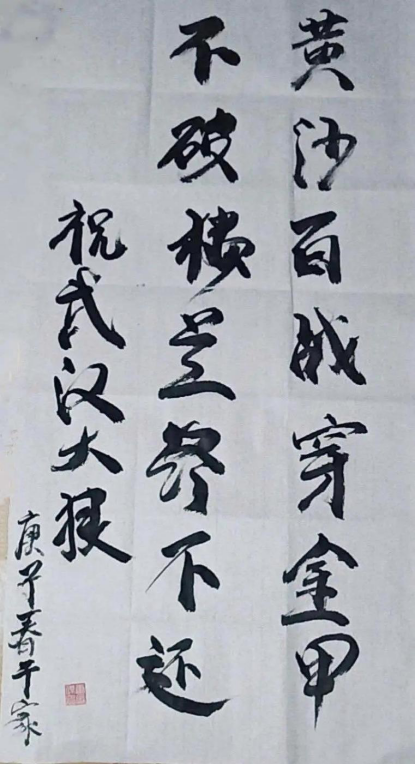 黄沙百战穿金甲
不破楼兰终不还
祝武汉大捷
庚子春于家